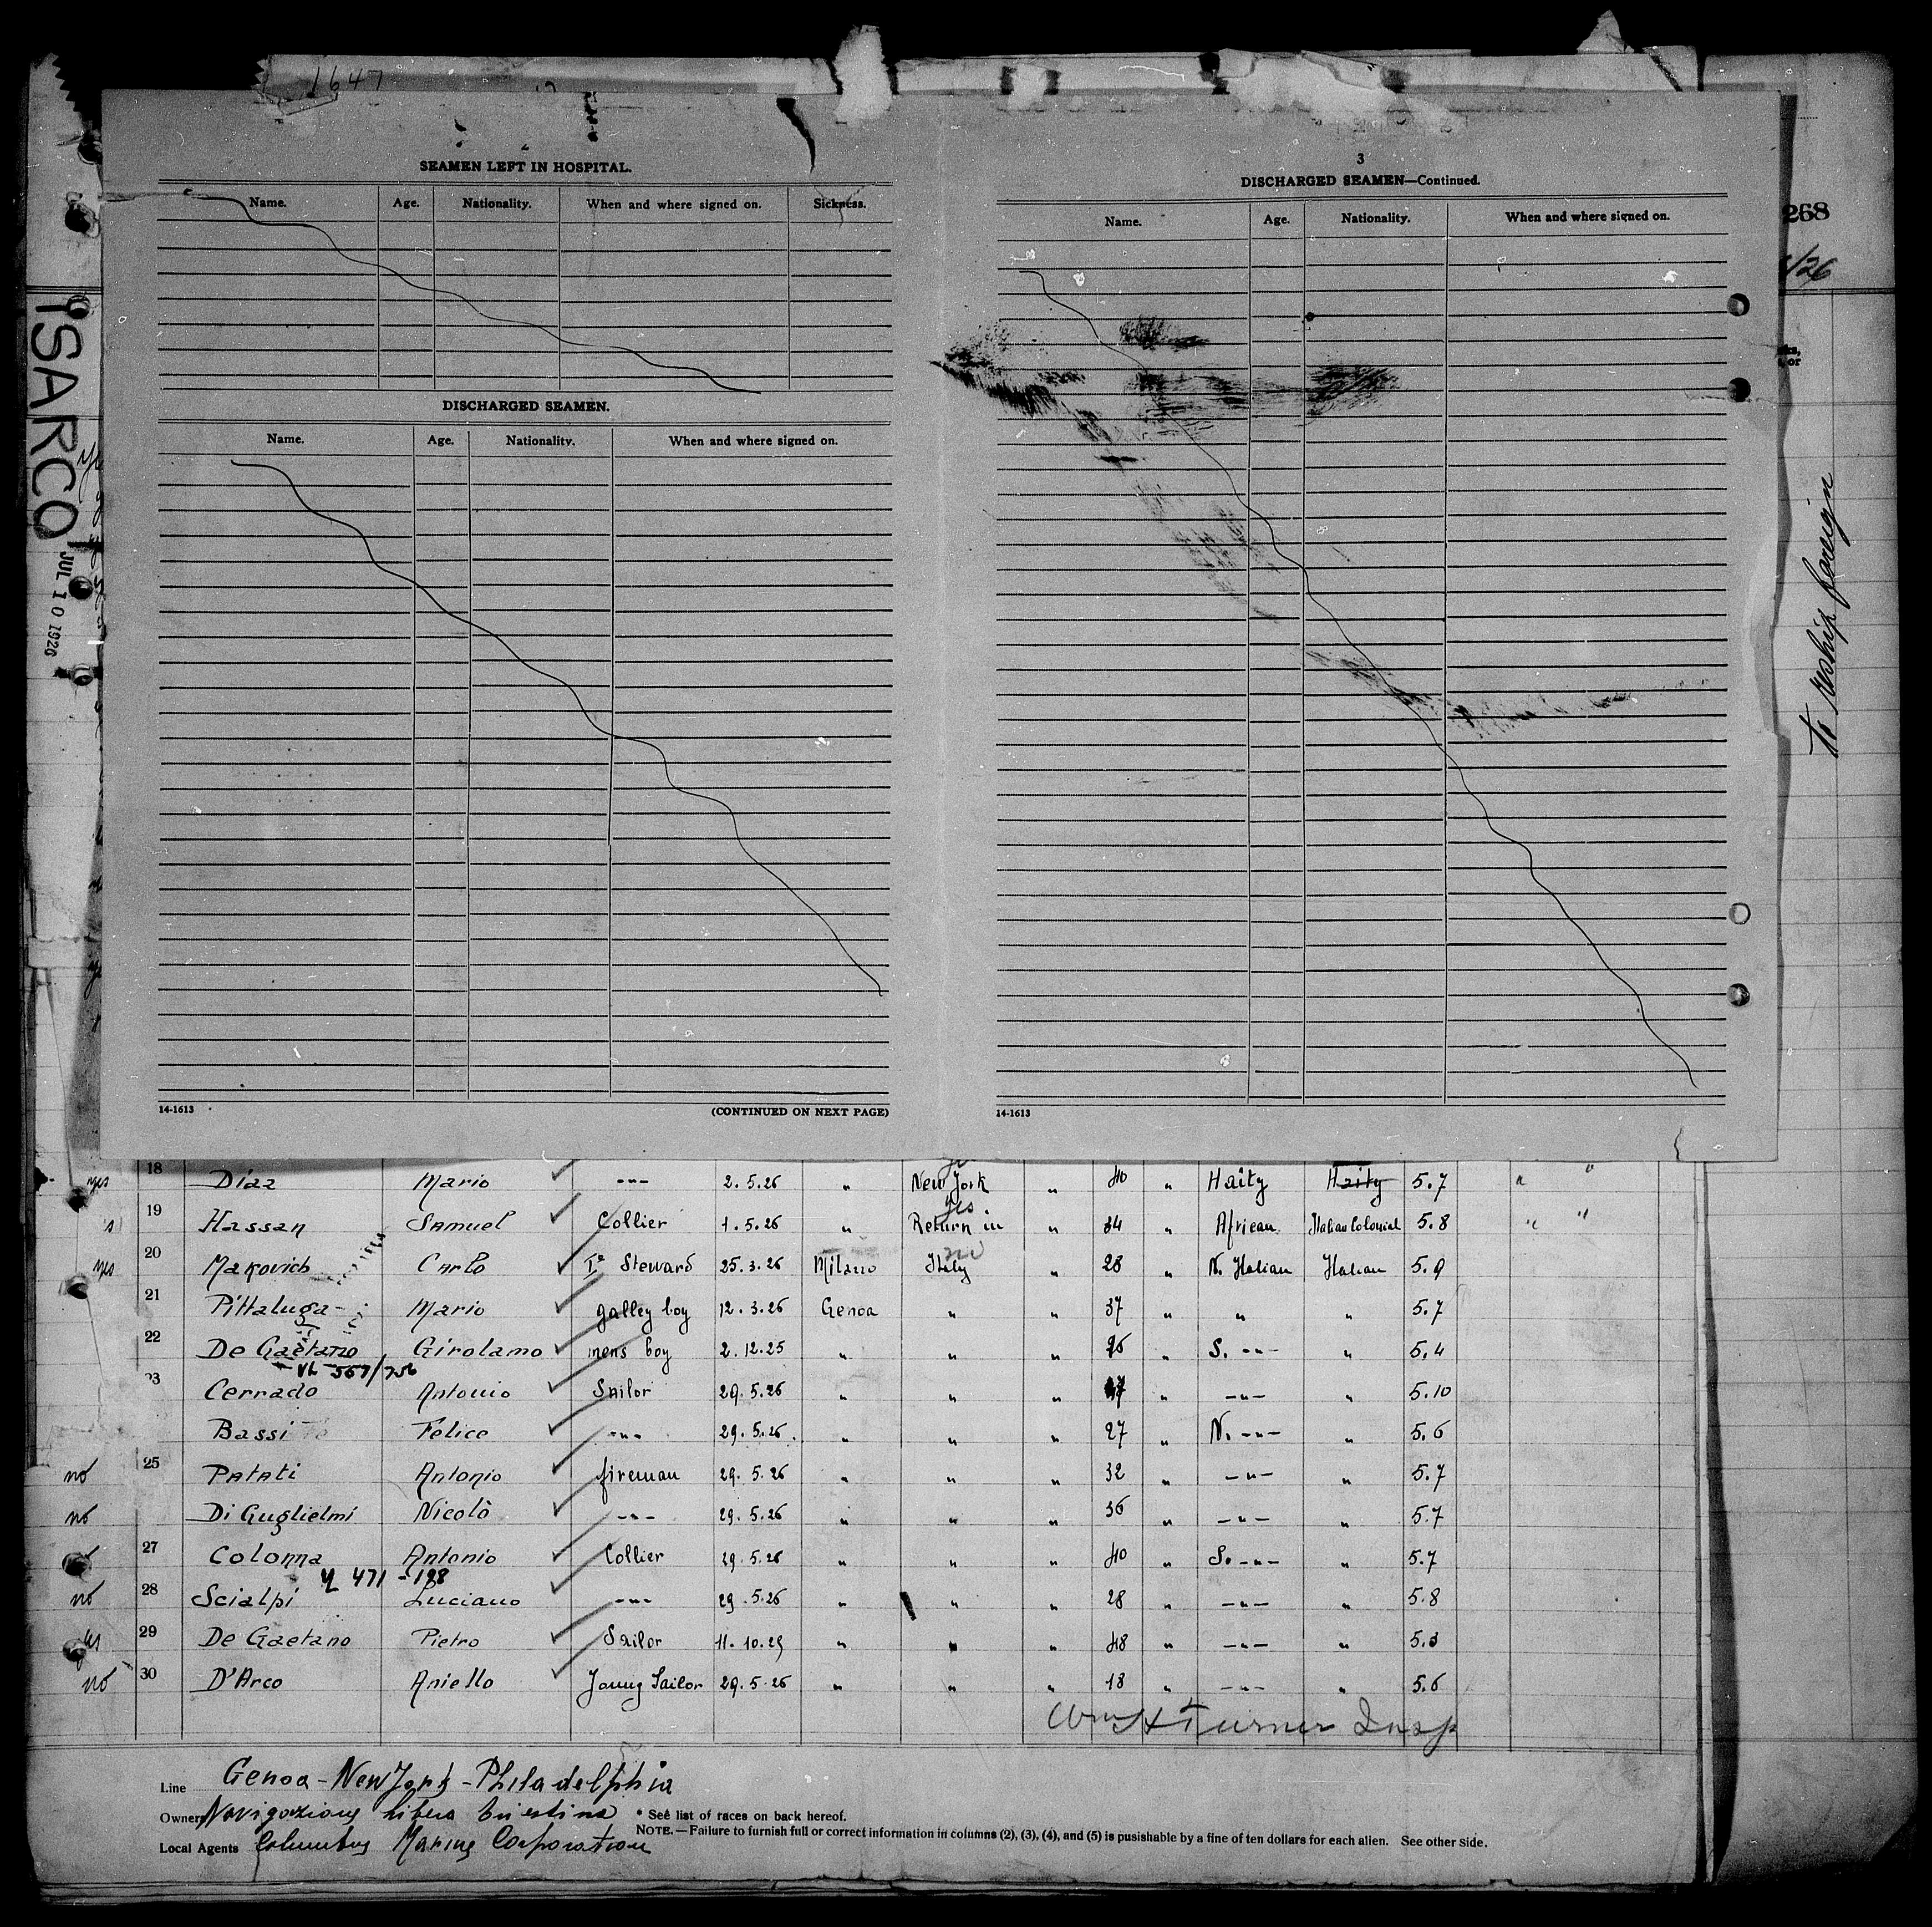 1647
268
/26
ISARCO
JUL 10 1926
To reship foreign
SEAMEN LEFT IN HOSPITAL.
Name. Age. Nationality. When and where signed on. Sickness.
DISCHARGED SEAMEN.
Name. Age. Nationality. When and where signed on.
14-1613 (CONTINUED ON NEXT PAGE)
3
DISCHARGED SEAMEN—Continued.
Name. Age. Nationality. When and where signed on.
14-1613
yes 18 Diaz Mario -"- 2.5.26 " New York " 40 " Haity Haity 5.7 " "
yes
19 Hassan Samuel Collier 1.5.26 " Return in " 34 " African Italian Colonial 5.8 " "
no
yes 20 Makovich Carlo Iº Steward 25.3.26 Milano Italy " 28 " N. Italian Italian 5.9
21 Pittaluga Mario galley boy 12.3.26 Genoa " " 37 " " " 5.7
22 De Gaetano Girolamo mens boy 2.12.25 " " " " S. -"- " 5.4
23 Cerrado Antonio Sailor 29.5.26 " " " " -"- " 5.10
Bassi Felice -"- 29.5.26. " " " 27 " N. -"- " 5.6
no 25 Patati Antonio fireman 29.5.26 " " " 32 " -"- " 5.7
no Di Guglielmi Nicolò -"- 29.5.26 " " " 36 " -"- " 5.7
27 Colonna Antonio Collier 29.5.26 " " " 40 " S. -"- " 5.7
471-198
no 28 Scialpi Luciano -"- 29.5.26 " " " 28 " -"- " 5.8
29 De Gaetano Pietro Sailor 11.10.25 " " " 48 " -"- " 5.3
no 30 D'Arco Aniello Young Sailor 29.5.26 " " " 18 " -"- " 5.6
Wm H Turner Insp
Line Genoa - New York - Philadelphia
Owners Navigazione Libera Triestina * See list of races on back hereof.
NOTE.—Failure to furnish full or correct information in columns (2), (3), (4), and (5) is pusishable by a fine of ten dollars for each alien. See other side.
Local Agents Columbus Marine Corporation